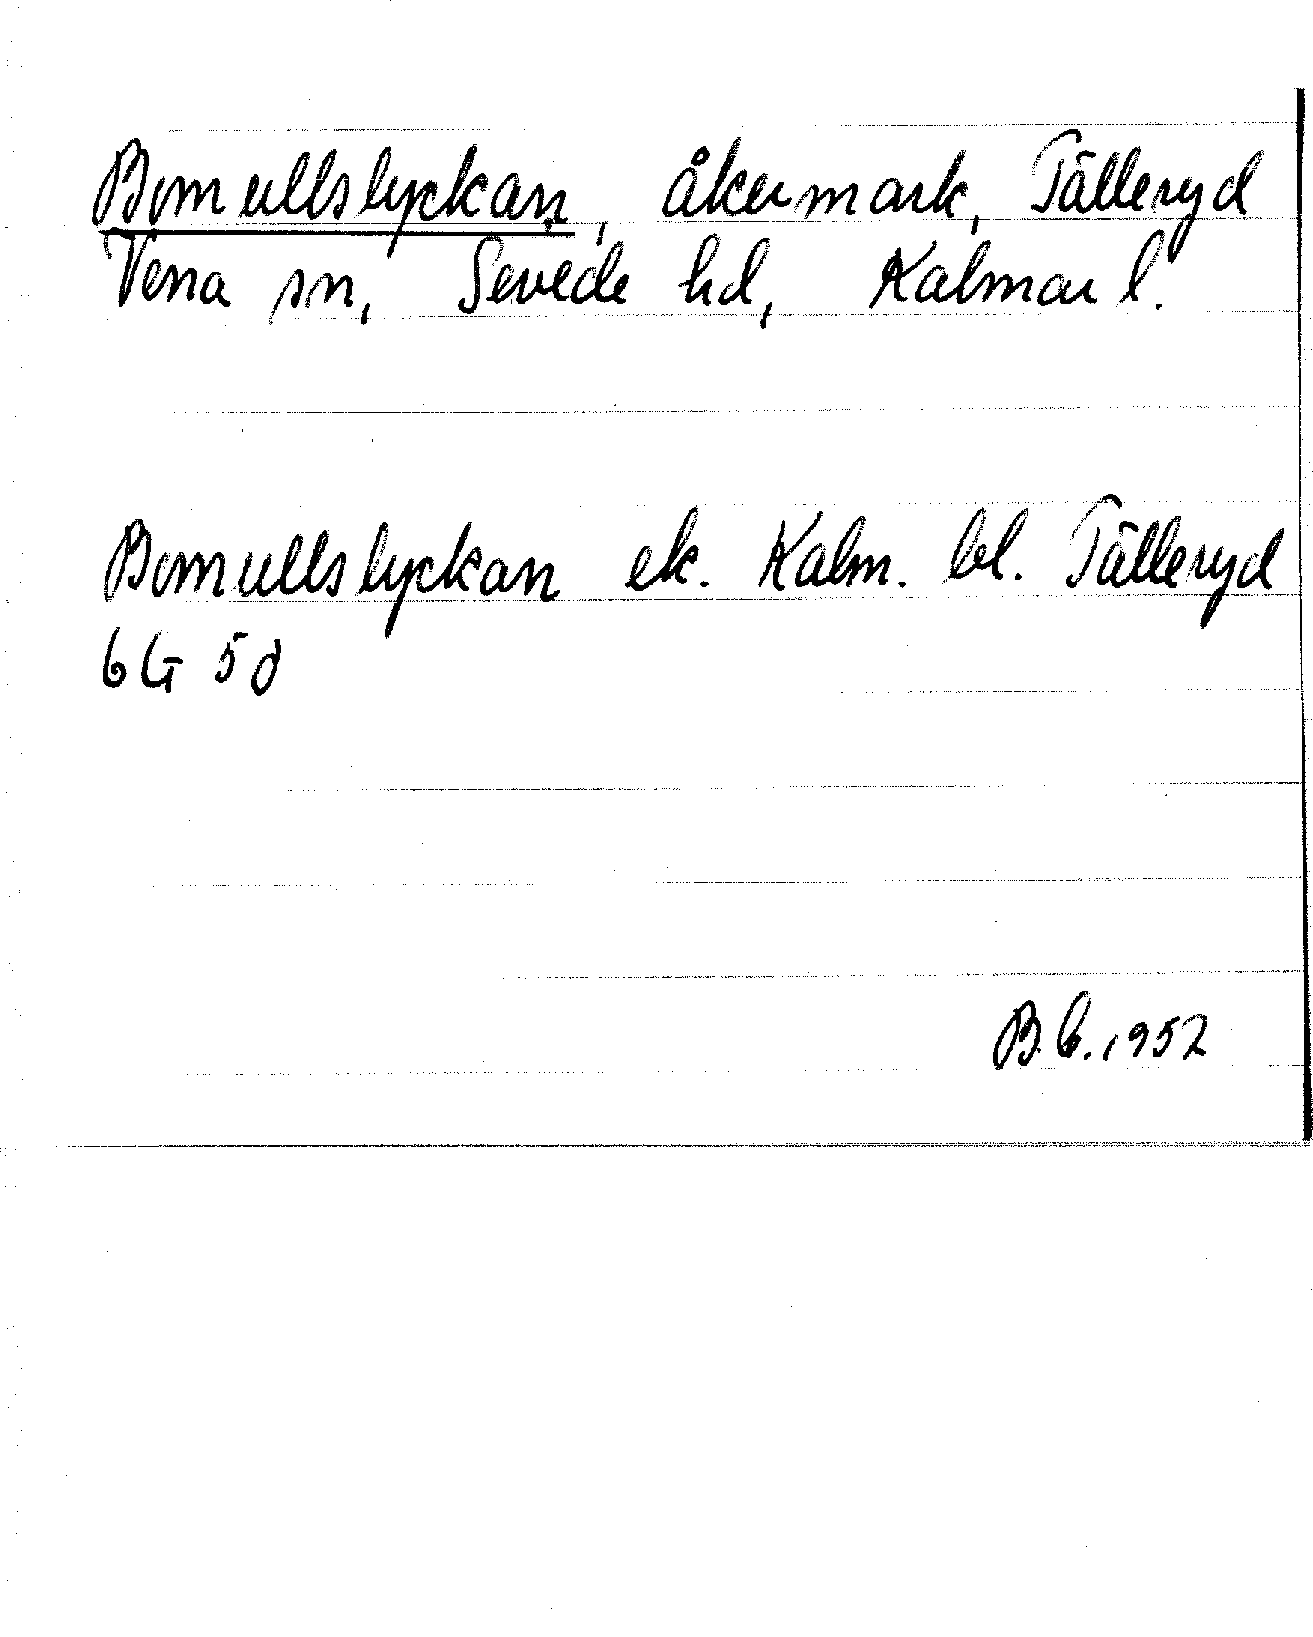 Bomullslyckan, åkermark, Tälleryd
Vena sn, Sevede hd, Kalmar l.
Bomullslyckan ek. Kalm. bl. Tälleryd
6G 5d
B.C. 1952